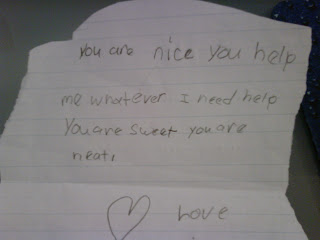 you are nice you help
me whatever I need help
You are sweet you are
neat,
Love